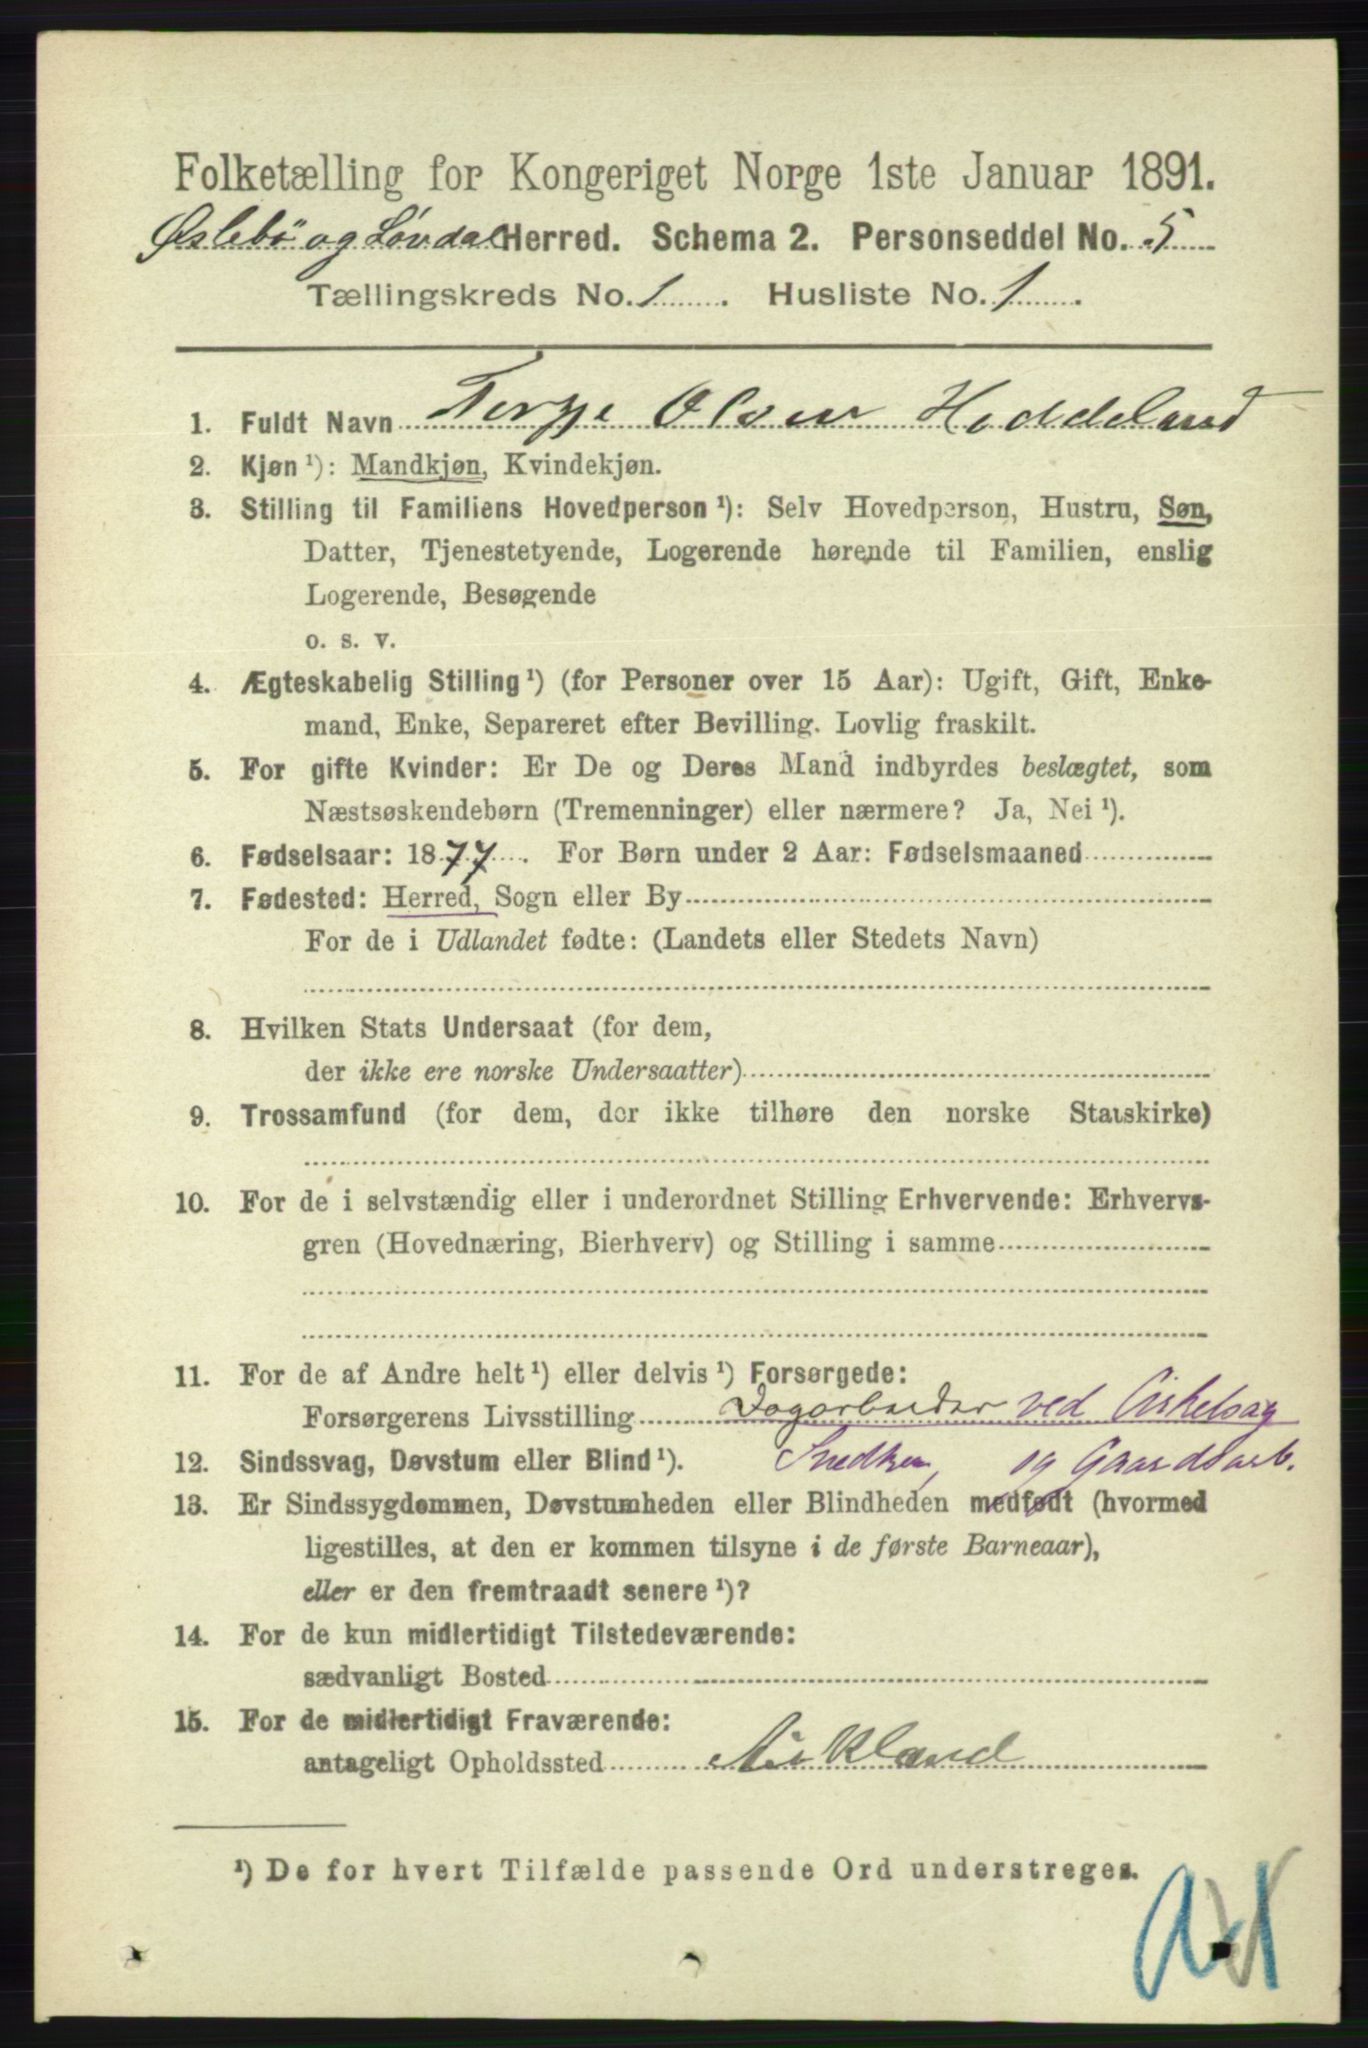 Folketælling for Kongeriget Norge 1ste Januar 1891.
Øslebö og Løvdal Herred. Schema 2. Personseddel No. 5
Tællingskreds No. 1. Husliste No. 1.
1. Fuldt Navn Terje Olsen Heddeland
2. Kjøn ¹): Mandkjøn, Kvindekjøn.
3. Stilling til Familiens Hovedperson ¹): Selv Hovedperson, Hustru, Søn,
Datter, Tjenestetyende, Logerende hørende til Familien, enslig
Logerende, Besøgende
o. s. v.
4. Ægteskabelig Stilling ¹) (for Personer over 15 Aar): Ugift, Gift, Enke-
mand, Enke, Separeret efter Bevilling. Lovlig fraskilt.
5. For gifte Kvinder: Er De og Deres Mand indbyrdes beslægtet, som
Næstsøskendebørn (Tremenninger) eller nærmere? Ja, Nei ¹).
6. Fødselsaar: 1877. For Børn under 2 Aar: Fødselsmaaned
7. Fødested: Herred, Sogn eller By
For de i Udlandet fødte: (Landets eller Stedets Navn)
8. Hvilken Stats Undersaat (for dem,
der ikke ere norske Undersaatter)
9. Trossamfund (for dem, der ikke tilhøre den norske Statskirke)
10. For de i selvstændig eller i underordnet Stilling Erhvervende: Erhvervs-
gren (Hovednæring, Bierhverv) og Stilling i samme
11. For de af Andre helt ¹) eller delvis ¹) Forsørgede:
Forsørgerens Livsstilling Dagarbeider ved Cirkelsag
12. Sindssvag, Døvstum eller Blind ¹). Snedker, og Gaardsarb.
13. Er Sindssygdommen, Døvstumheden eller Blindheden medfødt (hvormed
ligestilles, at den er kommen tilsyne i de første Barneaar),
eller er den fremtraadt senere ¹)?
14. For de kun midlertidigt Tilstedeværende:
sædvanligt Bosted
15. For de midlertidigt Fraværende:
antageligt Opholdssted
¹) De for hvert Tilfælde passende Ord understreges.